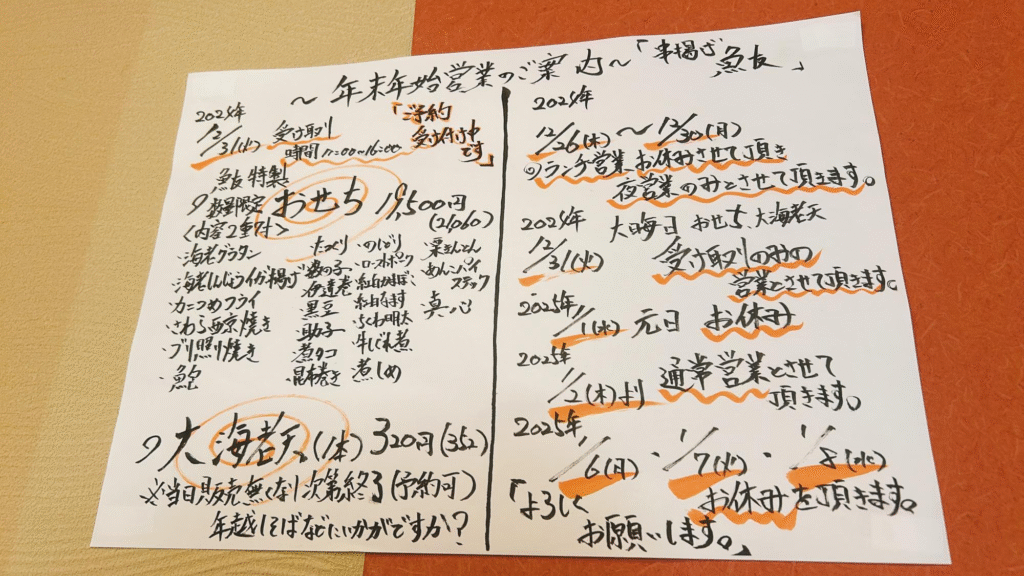 ～年末年始営業のご案内～「串揚げ 魚友」
2024年
12/31(火) 受け取り
時間11:00〜16:00
「ご予約
受け付け中
です」
魚友特製
数量限定 おせち 19,500円
(21,060)
<内容2重セット>
・海老グラタン
・海老しんじょうイカ揚げ
・カニつめフライ
・さわら西京焼き
・ブリ照り焼き
・鮑
・たづくり
・数の子
・伊達巻
・黒豆
・助子
・煮タコ
・昆布巻き
・のしどり
・ローストポーク
・紅白かまぼこ
・紅白なます
・ちくわ明太
・牛しぐれ煮
・煮しめ
・栗きんとん
・あんパイ
スティック
・真パパ
大海老天(1本) 320円(352)
※当日販売無くなり次第終了(予約可)
年越しそばなどにいかがですか?
2024年
12/26(木)〜12/30(月)
ランチ営業お休みさせて頂き
夜営業のみとさせて頂きます。
2024年 大晦日 おせち、大海老天
12/31(火) 受け取りのみの
営業とさせて頂きます。
2025年
1/1(水) 元日 お休み
2025年
1/2(木)より 通常営業とさせて
頂きます。
2025年
1/6(月)・1/7(火)・1/8(水)
お休みを頂きます。
「よろしく
お願いします。」